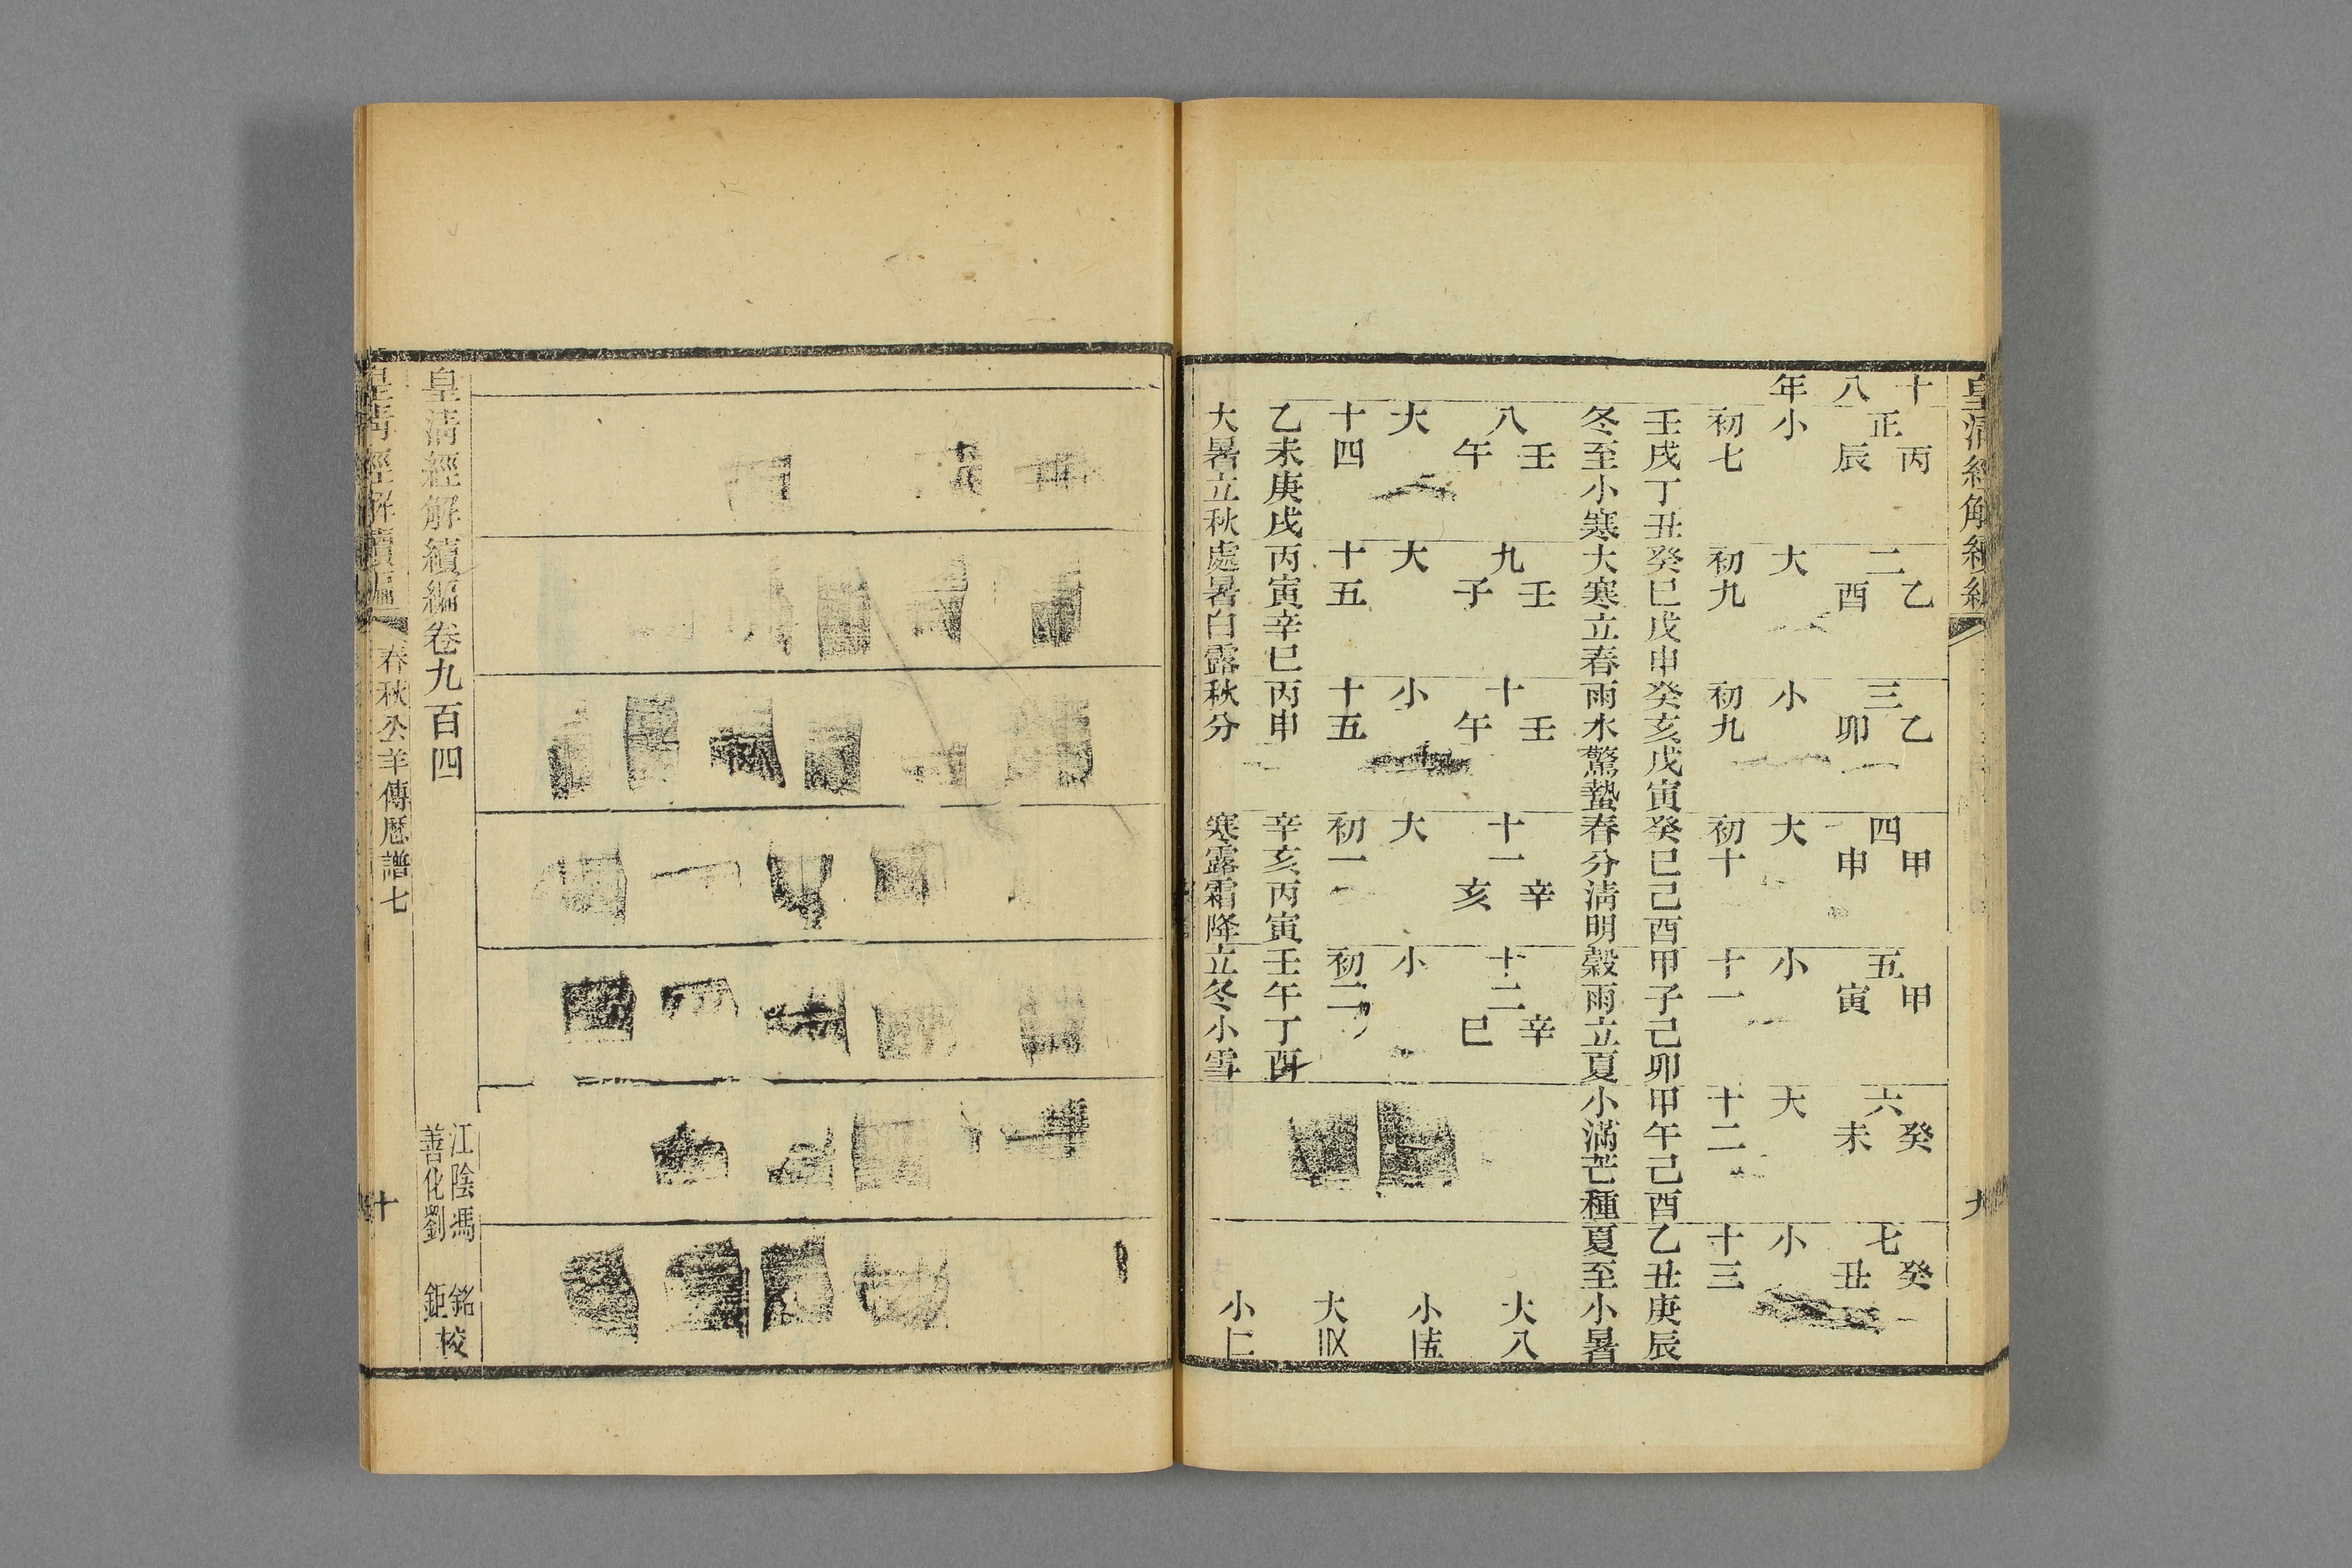 十八年
正 丙辰 小 初七 壬戌丁丑 冬至小寒
二 乙酉 大 初九 癸巳戊申 大寒立春
三 乙卯 小 初九 癸亥戊寅 雨水驚蟄
四 甲申 大 初十 癸巳己酉 春分清明
五 甲寅 小 十一 甲子己卯 穀雨立夏
六 癸未 大 十二 甲午己酉 小滿芒種
七 癸丑 小 十三 乙丑庚辰 夏至小暑
八 壬午 大 十四 乙未庚戌 大暑立秋
九 壬子 大 十五 丙寅辛巳 處暑白露
十 壬午 小 十五 丙申 秋分
十一 辛亥 大 初一 辛亥丙寅 寒露霜降
十二 辛巳 小 初二 壬午丁酉 立冬小雪
大八
小
大
小
皇清經解續編卷九百四
江陰馮銘
善化劉鉅
校
皇清經解續編 春秋公羊傳厤譜七 十